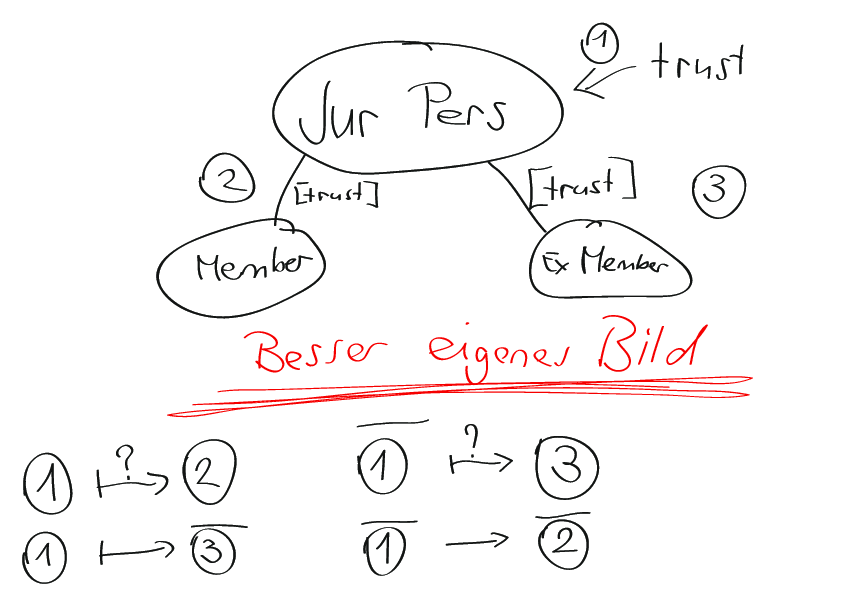 ① trust
Jur Pers
② [trust] [trust] ③
Member Ex Member
Besser eigenes Bild
① ⟼ ? ② ①̅ ⟼ ? ③
① ⟼ ③̅ ①̅ ⟶ ②̅